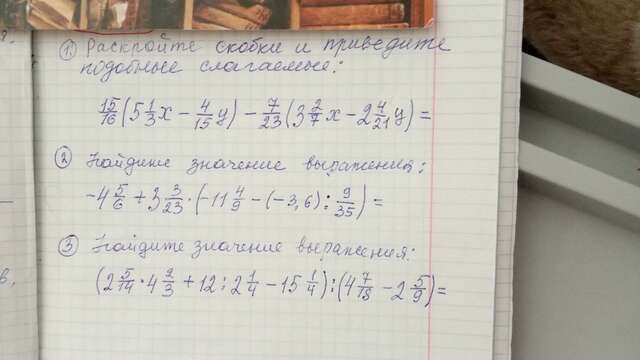 ① Раскройте скобки и приведите
подобные слагаемые:
15/16(5 1/3x - 4/15y) - 7/23(3 2/7x - 2 4/21y) =
② Найдите значение выражения:
-4 5/6 + 3 3/23 · (-11 4/9 - (-3,6) : 9/35) =
③ Найдите значение выражения:
(2 5/14 · 4 2/3 + 12 : 2 1/4 - 15 1/4) : (4 7/18 - 2 5/9) =